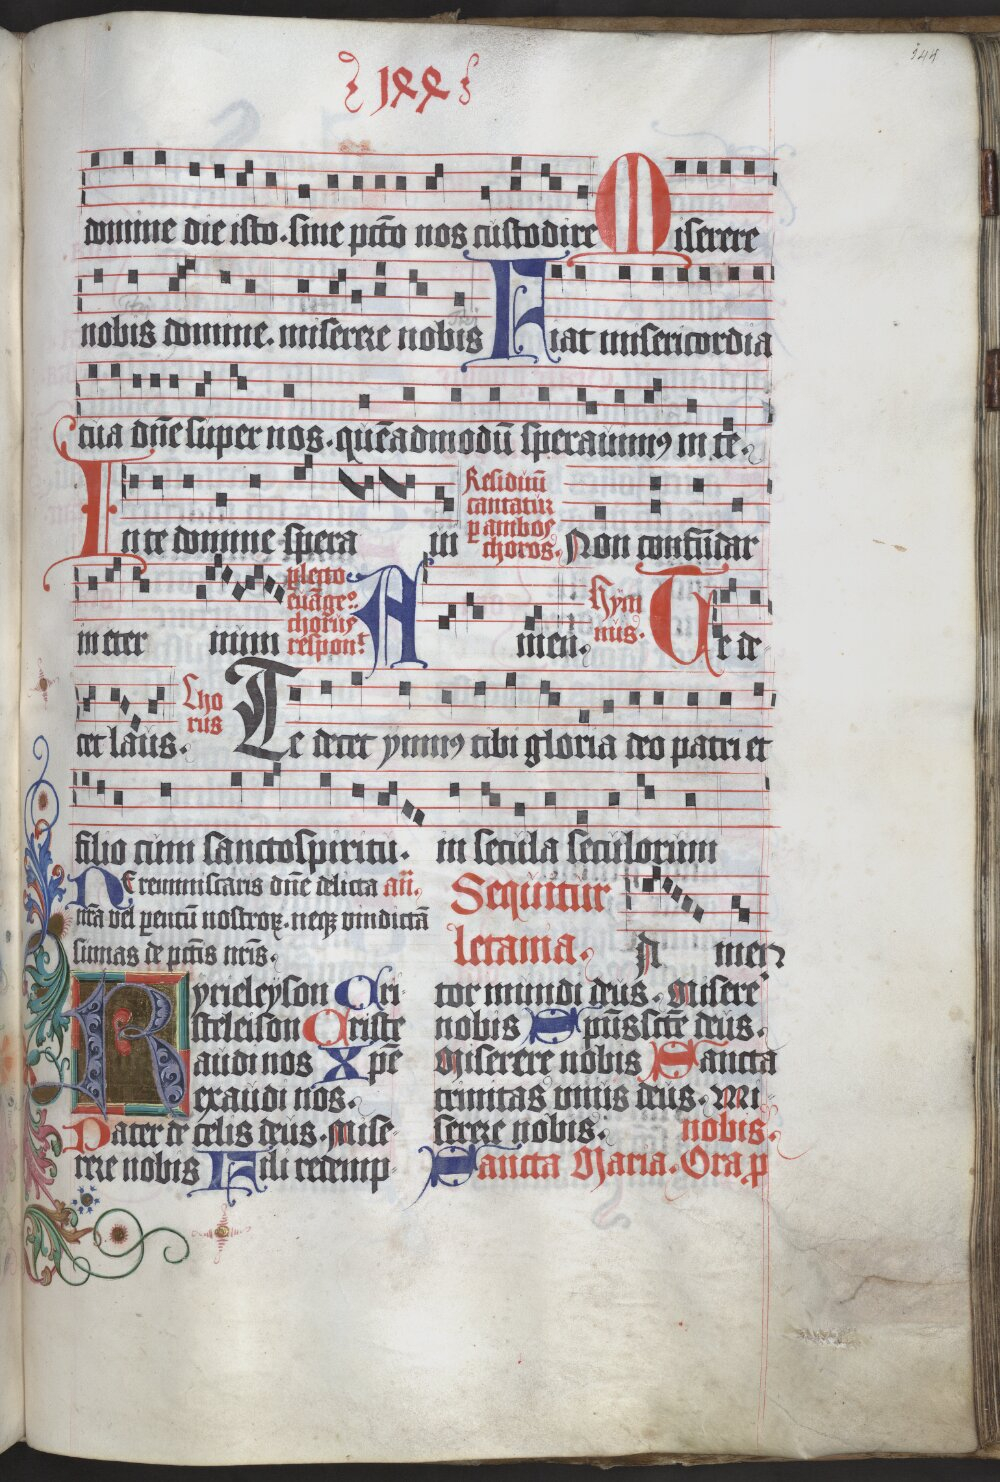 144
domine die isto. sine pctō nos custodire Miserere
nobis domine. miserere nobis Fiat misericordia
tua dn̄e super nos. quēadmodū sperauimꝰ in te.
In te domine spera in Residuū
cantatur
p ambos
choros. Non confūdar
in eter num
pleto
euāgeº
chorus
respont Amen. Hym
nus. Te de
cet laus. Cho
rus Te decet ymnꝰ tibi gloria deo patri et
filio cum sanctospiritu. in secula seculorum
Ne reminiscaris dn̄e delicta an̄.
nr̄a vel parentū nostroꝝ. neqꝫ vindictā
sumas de pctis nr̄is.
Sequitur
letania. A men
Kyrieleyson Cri
steleison Criste
audi nos Xpē
exaudi nos.
Pater de celis deus. Mise
rere nobis Fili redemp
tor mundi deus. Misere
nobis Spūs scē deus.
Miserere nobis Sancta
trinitas vnus deus. Mi
serere nobis. nobis.
Sancta Maria. Ora p